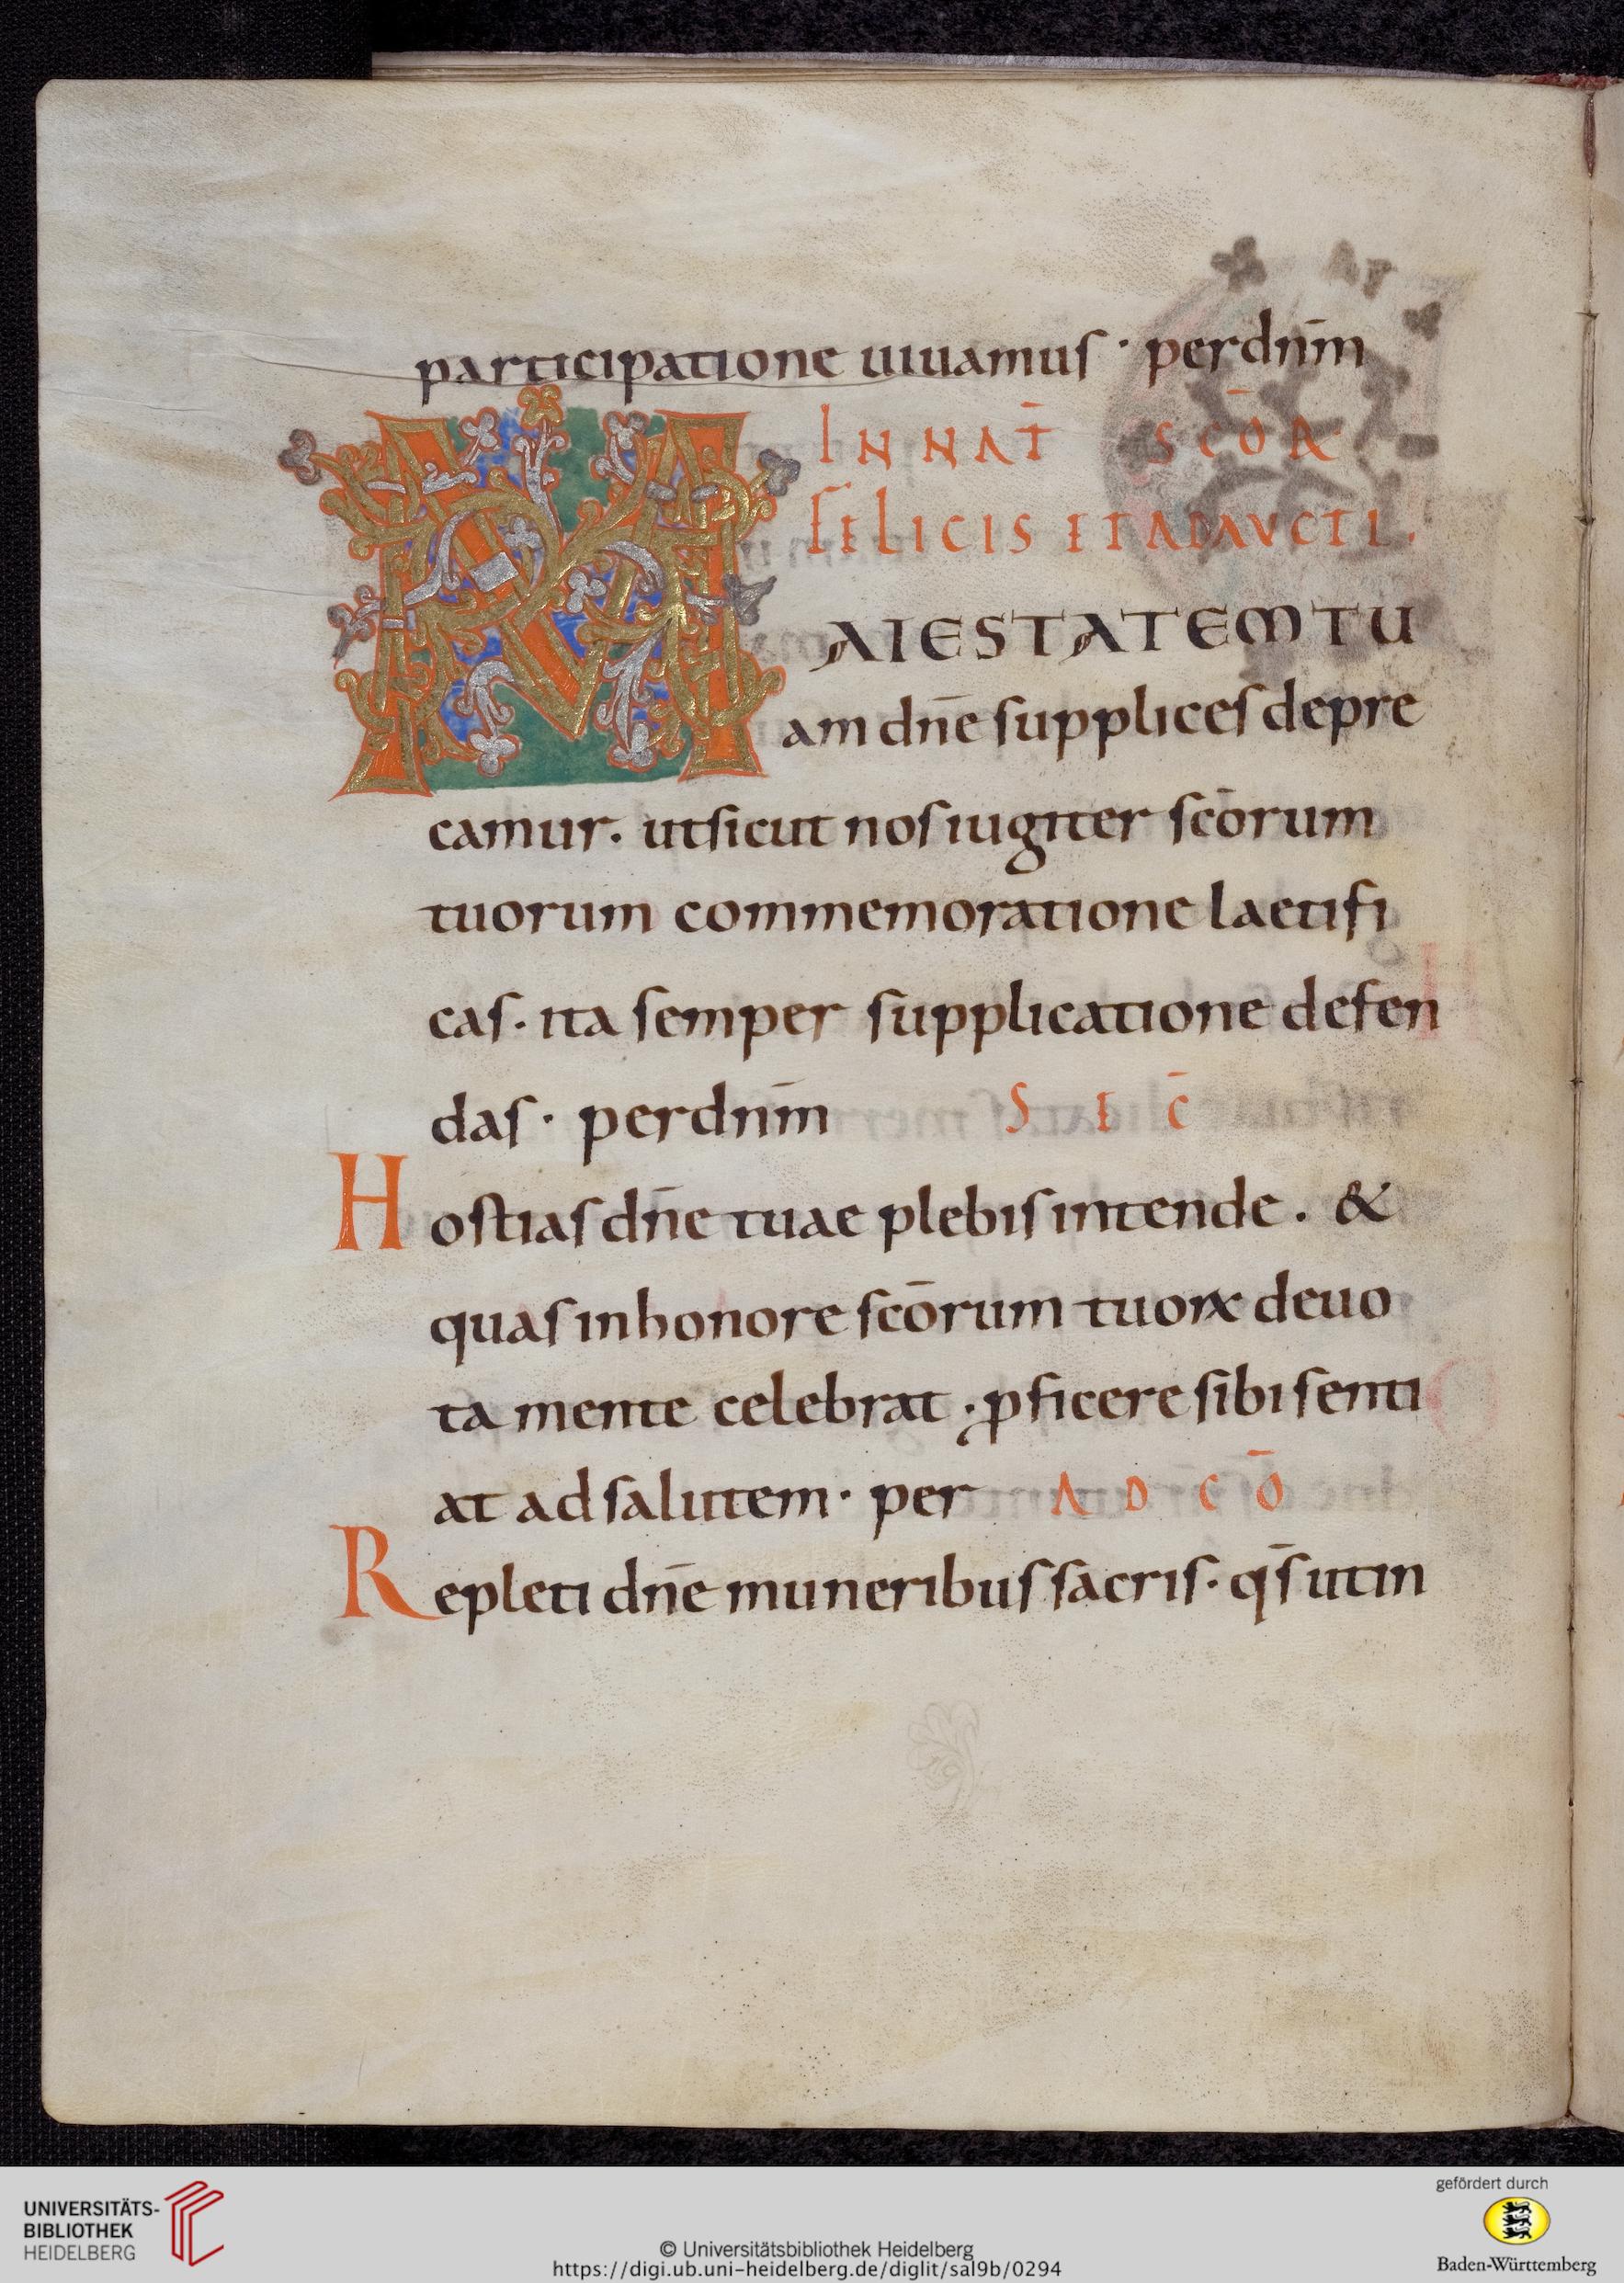 participatione uiuamus · perdn̄m
IN NAT̄ SCŌR
FELICIS ET ADAUCTI.
MAIESTATEM TU
am dn̄e supplices depre
camur. ut sicut nos iugiter scōrum
tuorum commemoratione laetifi
cas · ita semper supplicatione defen
das · perdn̄m S E C̄
Hostias dn̄e tuae plebis intende . &
quas in honore scōrum tuoꝝ deuo
ta mente celebrat · ꝓficere sibi senti
at ad salutem · per A D C Ō
Repleti dn̄e muneribus sacris · q̄s ut in
UNIVERSITÄTS-
BIBLIOTHEK
HEIDELBERG
© Universitätsbibliothek Heidelberg
https://digi.ub.uni-heidelberg.de/diglit/sal9b/0294
gefördert durch
Baden-Württemberg